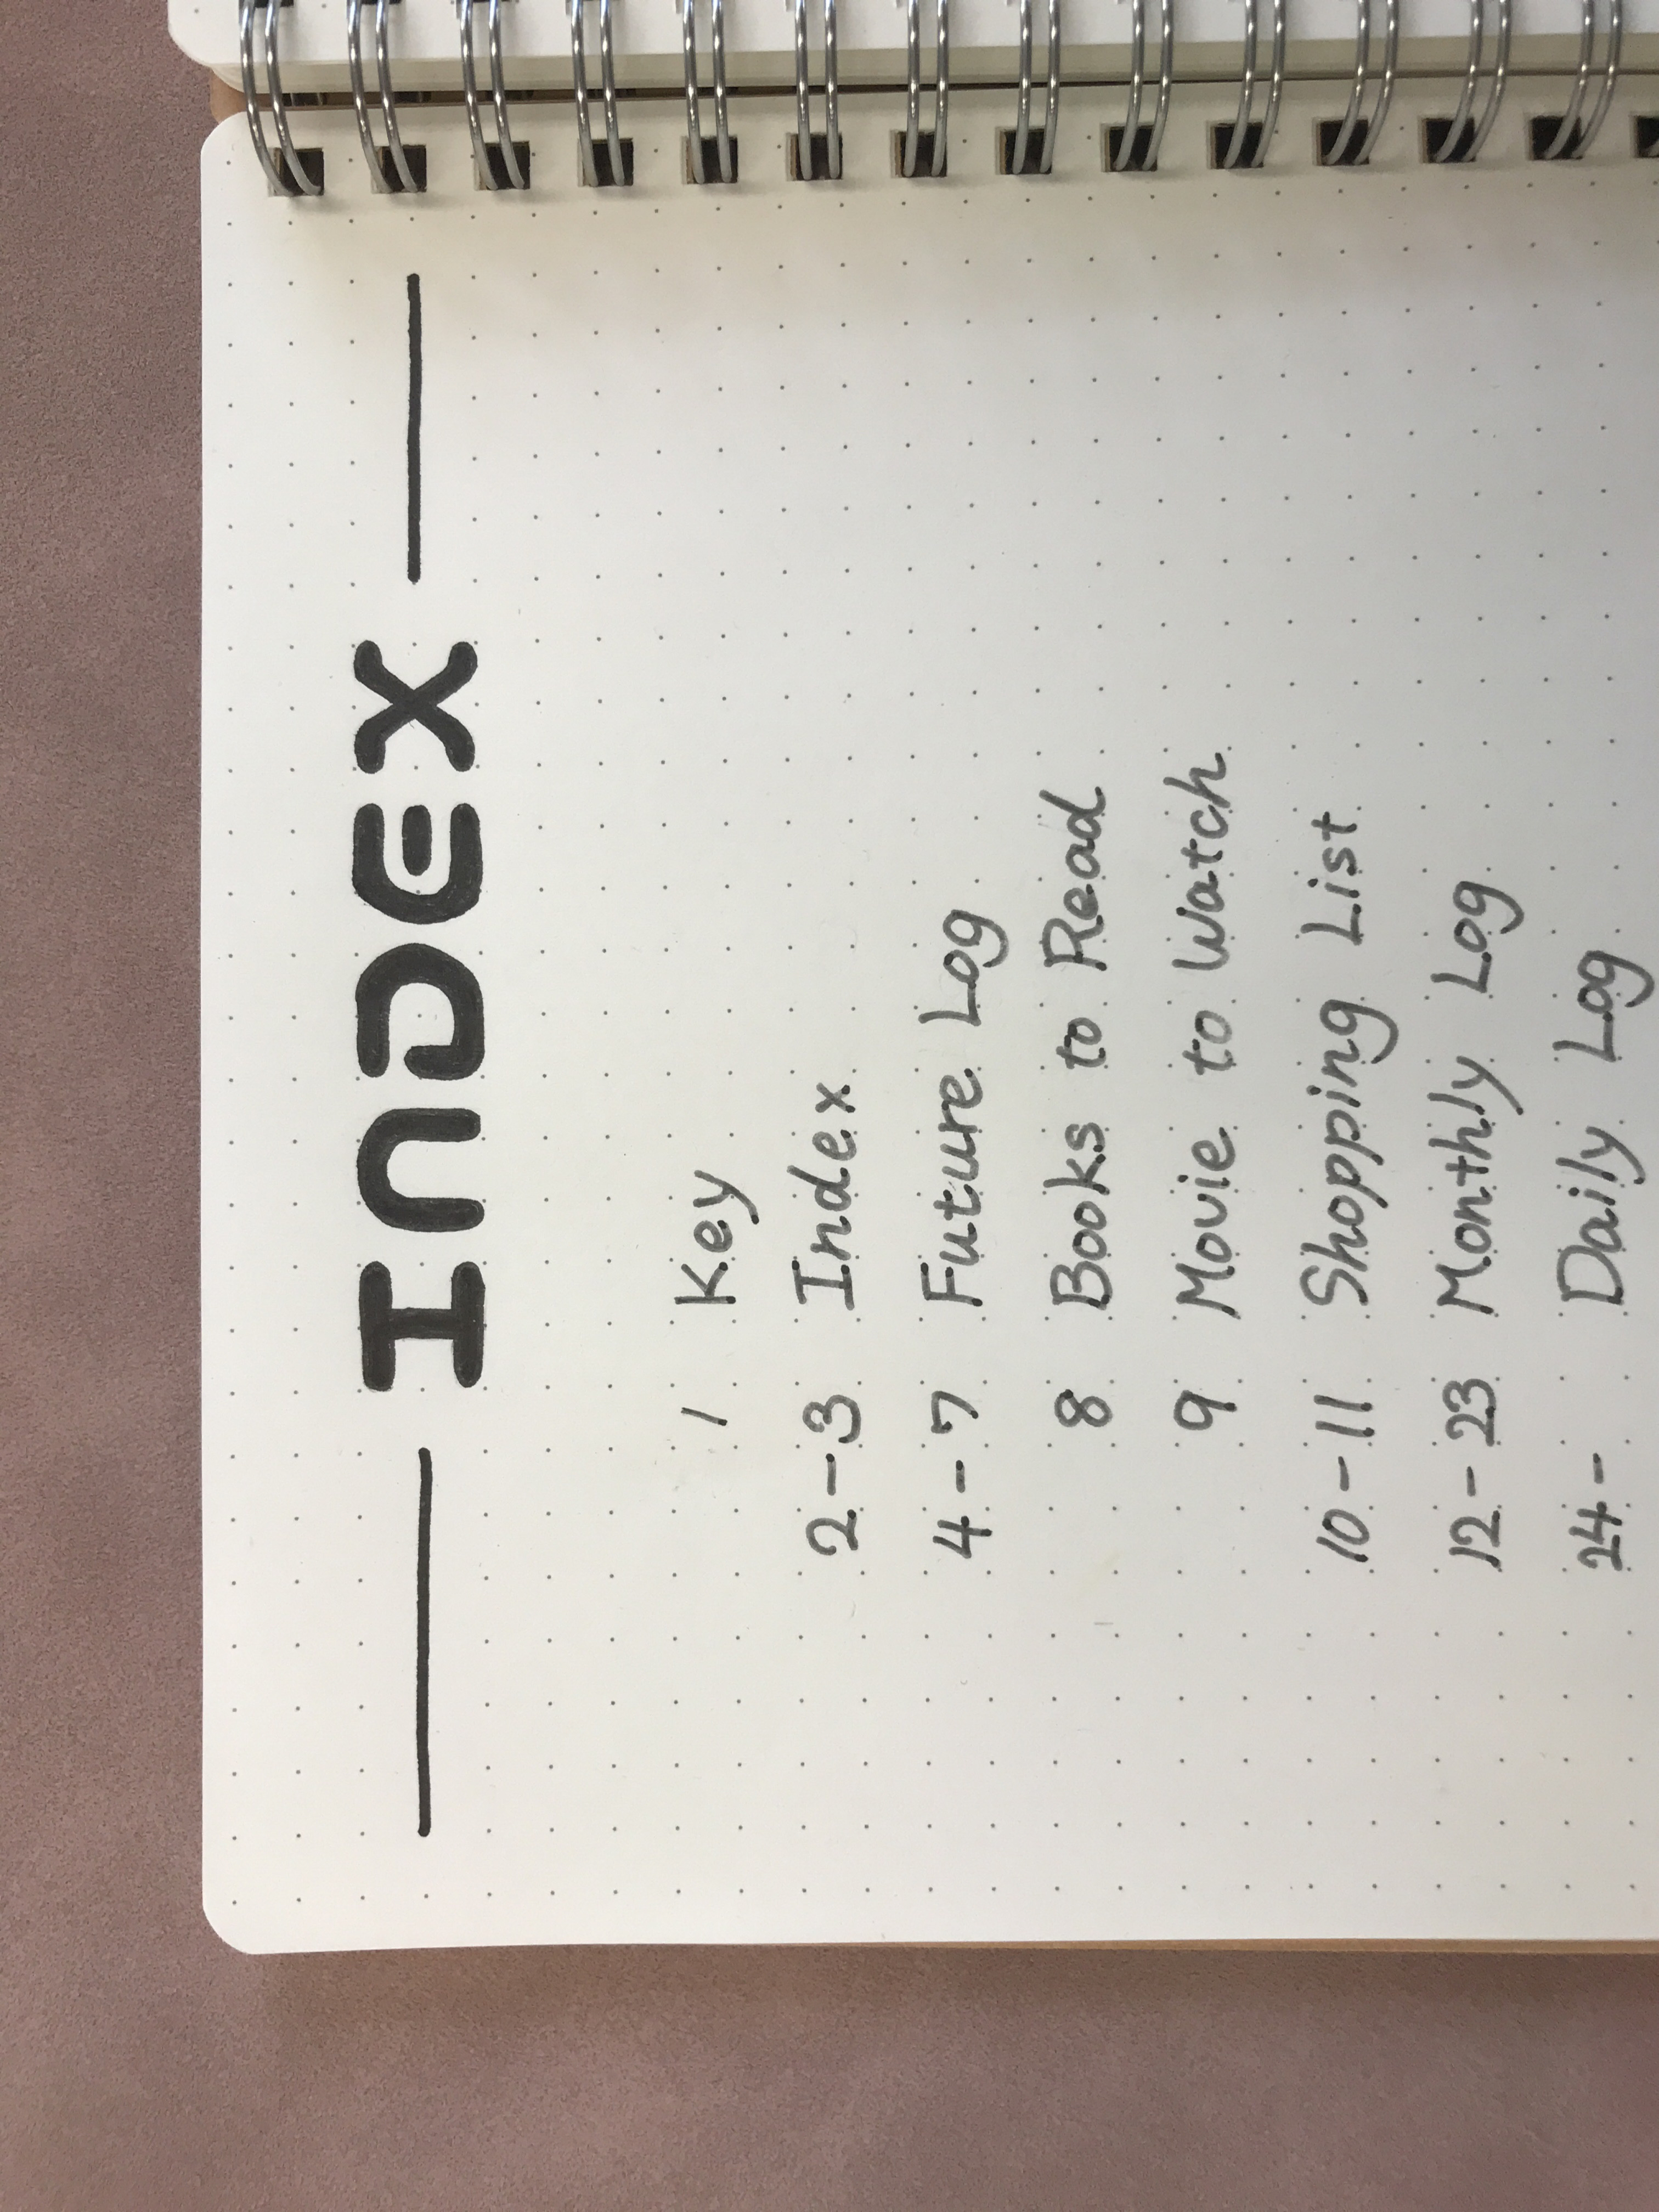 INDEX
1 Key
2-3 Index
4-7 Future Log
8 Books to Read
9 Movie to Watch
10-11 Shopping List
12-23 Monthly Log
24- Daily Log